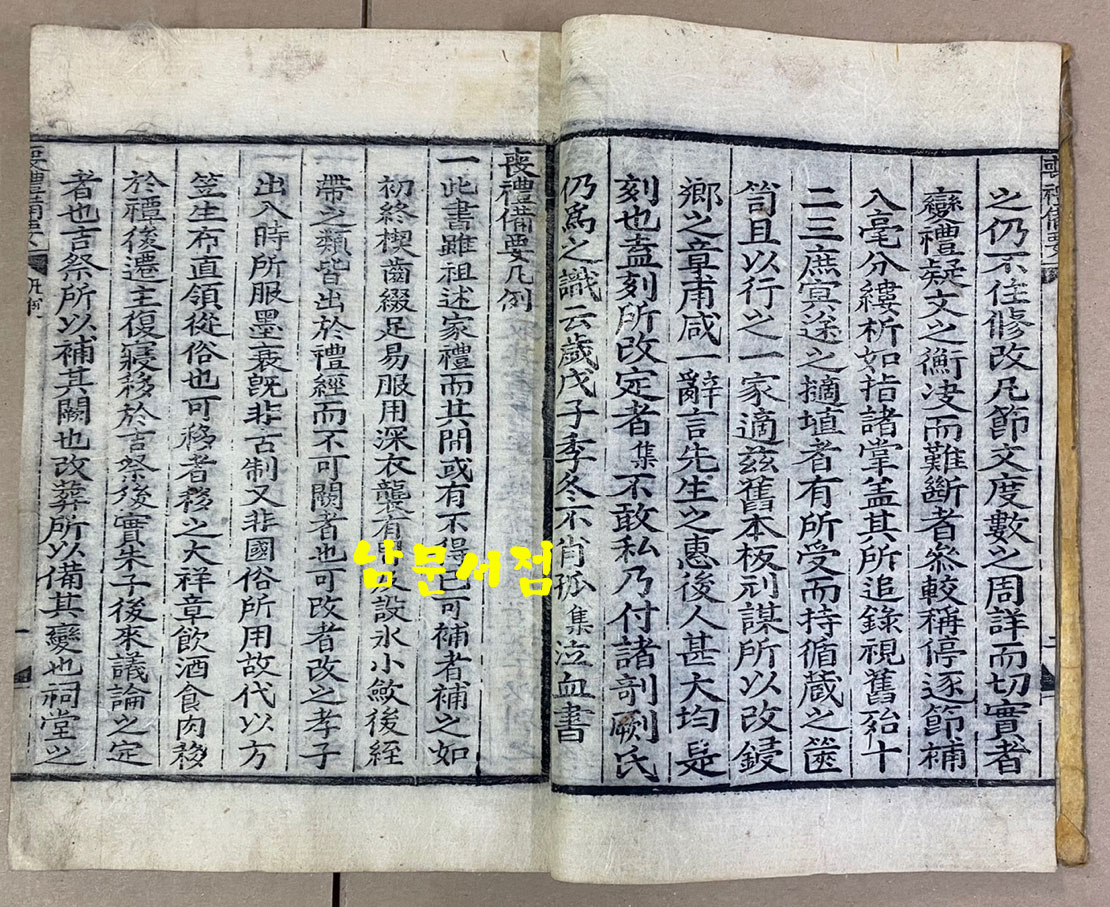 喪禮備要
之仍不住修改凡節文度數之周詳而切實者
變禮疑文之衡决而難斷者叅較稱停逐節補
入毫分縷析如指諸掌盖其所追錄視舊殆十
二三庶冥途之擿埴者有所受而持循蔵之篋
笥且以行之一家適茲舊本板刓謀所以改鋟
鄕之章甫咸一辭言先生之惠後人甚大均
刻也盍刻所改定者集不敢私乃付諸剞劂氏
仍爲之識云歲戊子季冬不肖孤集泣血書
喪禮備要凡例
一此書雖祖述家禮而其間或有不得已可補者補之如
初終楔齒綴足易服用深衣襲有設氷小斂後絰
帶之類皆出於禮經而不可闕者也可改者改之孝子
出入時所服墨衰旣非古制又非國俗所用故代以方
笠生布直領從俗也可移者移之大祥章飮酒食肉移
於禫後遷主復寢移於吉祭後實朱子後來議論之定
者也吉祭所以補其闕也改葬所以備其變也祠堂之
喪禮備要 凡例
남문서점